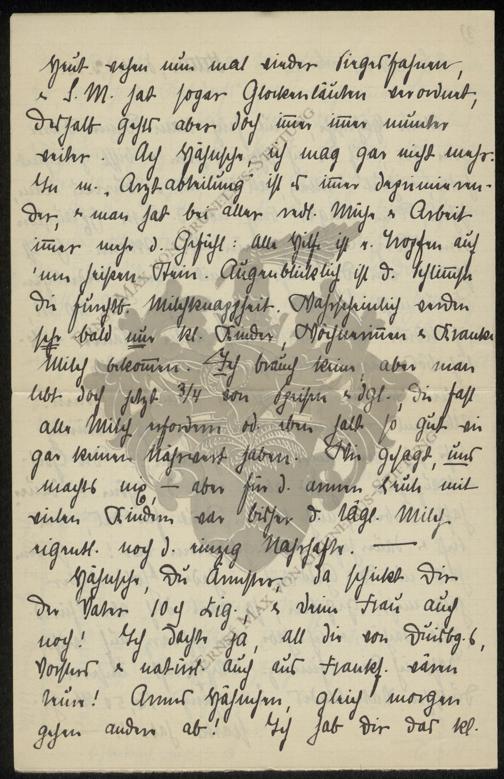 Heut wehen nun mal wieder Siegesfahnen,
u S.M. hat sogar Glockenläuten verordnet,
deshalb gehts aber doch im̅er im̅er munter
weiter. Ach Hähnsche, ich mag gar nicht mehr.
In m. „Arztabteilung" ist es im̅er deprimieren-
der, u man hat bei aller redl. Mühe u Arbeit
im̅er mehr d. Gefühl: alle Hilfe ist e. Tropfen auf
'nen heißen Stein. Augenblicklich ist d. Schlim̅ste
die furchtb. Milchknappheit. Wahrscheinlich werden
sehr bald nur kl. Kinder, Wöchnerin̅en u Kranke
Milch bekom̅en. Ich brauch keine, aber man
lebt doch jetzt 3/4 von Speisen u dgl., die fast
alle Milch erfordern od. eben halt so gut wie
gar keinen Nährwert haben. Wie gesagt, uns
machts nix — aber für d. armen Leute mit
vielen Kindern war bisher d. tägl. Milch
eigentl. noch d. einzig Nahrhafte. —
Hähnsche, Du Ärmster, da schickt Dir
der Vater 104 Zig., u Deine Frau auch
noch! Ich dachte ja, all die von Duisbg.,
Vorsters u natürl. auch aus Frankf. wären
teuer! Armes Hähnchen, gleich morgen
gehen andere ab! Ich hab Dir das kl.